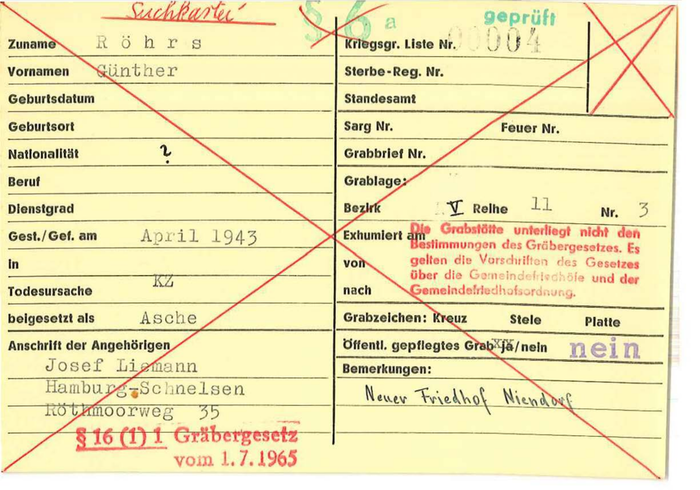 Suchkartei
§ 6 a
geprüft
Zuname Röhrs
Vornamen Günther
Geburtsdatum
Geburtsort
Nationalität ?
Beruf
Dienstgrad
Gest./Gef. am April 1943
in
Todesursache KZ
beigesetzt als Asche
Anschrift der Angehörigen
Josef Liemann
Hamburg-Schnelsen
Röthmoorweg 35
§ 16 (1) 1 Gräbergesetz
vom 1.7.1965
Kriegsgr. Liste Nr. 00004
Sterbe-Reg. Nr.
Standesamt
Sarg Nr. Feuer Nr.
Grabbrief Nr.
Grablage:
Bezirk V Reihe 11 Nr. 3
Exhumiert am
von
nach
Die Grabstätte unterliegt nicht den
Bestimmungen des Gräbergesetzes. Es
gelten die Vorschriften des Gesetzes
über die Gemeindefriedhöfe und der
Gemeindefriedhofsordnung.
Grabzeichen: Kreuz Stele Platte
Öffentl. gepflegtes Grab ja/nein nein
Bemerkungen:
Neuer Friedhof Niendorf